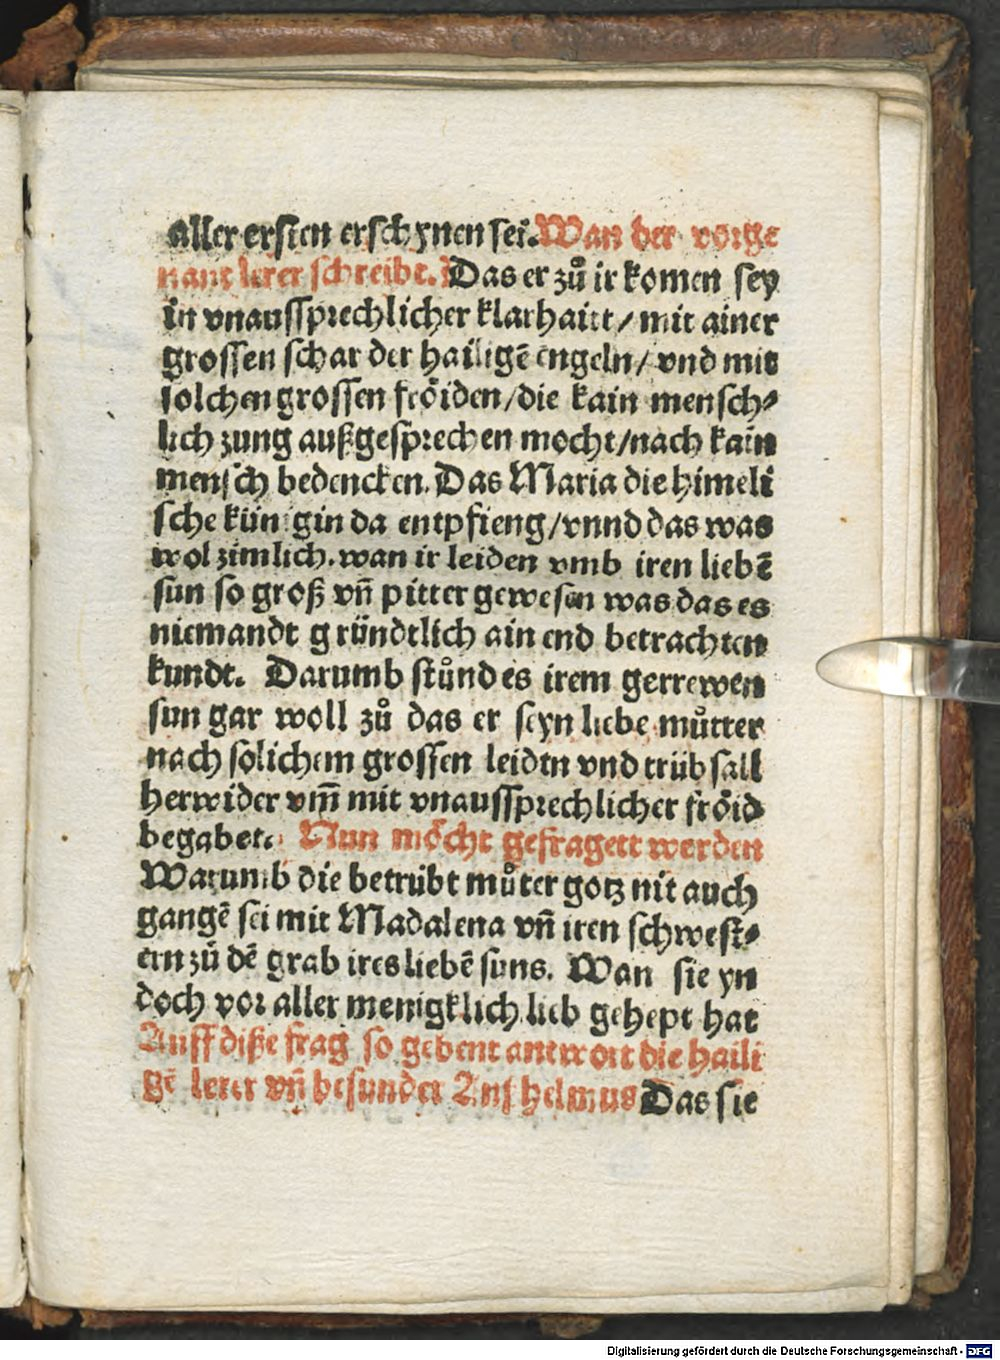 aller ersten erschynen sei. Wan der vorge
nant lerer schreibt. Das er zuͦ ir komen sey
in vnaussprechlicher klarhaitt/ mit ainer
grossen schar der hailigē engeln/ vnd mit
solchen grossen froͤiden/die kain mensch⸗
lich zung außgesprechen mocht/nach kain
mensch bedencken. Das Maria die himeli
sche künigin da entpfieng/vnnd das was
wol zimlich. wan ir leiden vmb iren liebē
sun so groß vn̄ pitter gewesen was das es
niemandt gründtlich ain end betrachten
kundt. Darumb stuͦnd es irem gerrewen
sun gar woll zuͦ das er seyn liebe muͦtter
nach solichem grossen leidtn vnd trübsall
herwider vm̄ mit vnaussprechlicher froͤid
begabet. Nun moͤcht gefragett werden
Warumb die betrübt muͦter gotz nit auch
gangē sei mit Madalena vn̄ iren schwest⸗
ern zuͦ dē grab ires liebē suns. Wan sie yn
doch vor aller menigklich lieb gehept hat
Auff diße frag so gebent antwort die haili
gē lerer vn̄ besunder Anshelmus Das sie
Digitalisierung gefördert durch die Deutsche Forschungsgemeinschaft - DFG